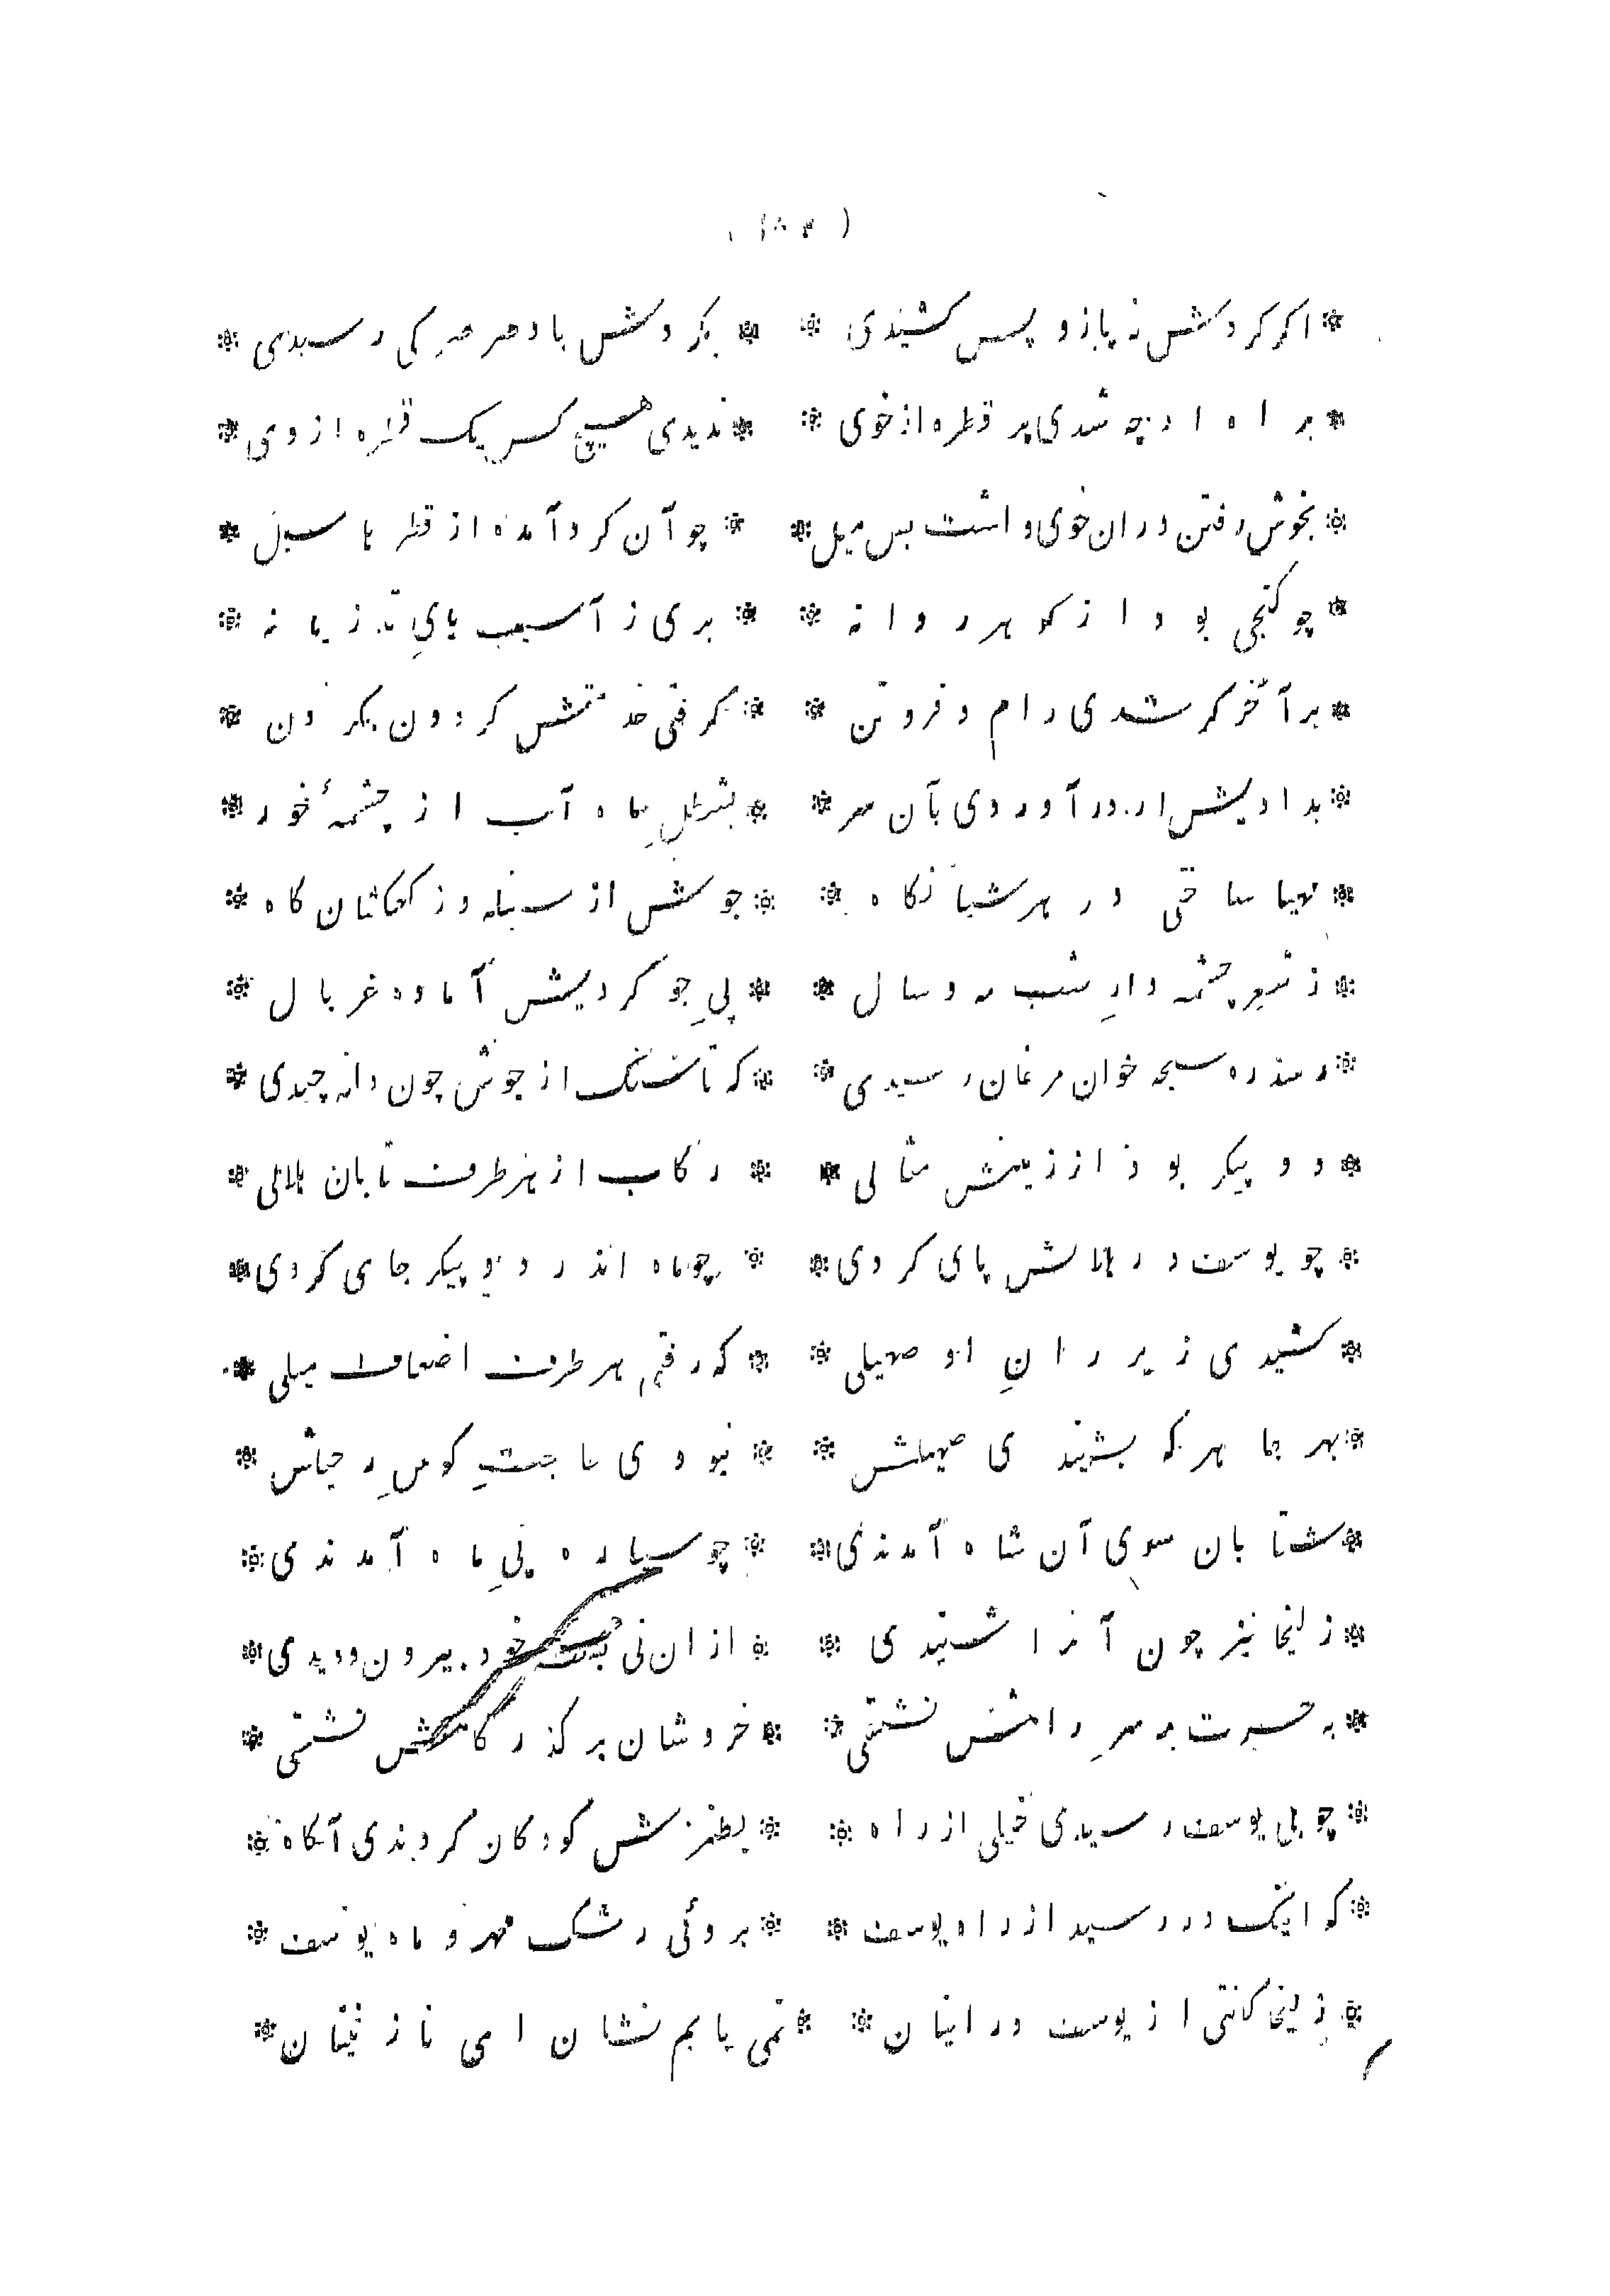 * اکر کردشس نه پاز و پسس کشیندی * بکر دشس باد صر صر کی رسیدی *
* براه ارچه شدی پر قطره از خوی * ندیدی هیچ کس یک قطره از وی *
* بخوش رفتن دران خوی داشت بس میل * چو آن کرد آمده از قطر ها سیل *
* چو کنجی بود از کوهر روانه * بری ز آسیب های تازیانه *
* بر آخر کر شدی رام و فروتن * کرفتی خدمتش کردون بکردن *
* بدادیش ار در آوردی بآن سر * بشطل ماه آب از چشمهٔ خور *
* مهیا ساختی در هر شبانکاه * جوشس از سنبله وز کهکشان کاه *
* ز شعر چشمه دار شب مه و سال * پی جو کردیش آماده غربال *
* ز سدره سبحه خوان مرغان رسیدی * که تا سنک از جوش چون دانه چیدی *
* دو پیکر بود از زینش مثالی * رکاب از هر طرف تابان هلالی *
* چو یوسف در هلالش پای کردی * چو ماه اندر دو پیکر جای کردی *
* کشیدی زیر ران او صهیلی * که رفتی هر طرف اضعاف میلی *
* بهر جا هر که بشنیدی صهیلش * نبودی حاجت کوس رحیلش *
* شتابان سوی آن شاه آمدندی * چو سیاره پی ماه آمدندی *
* زلیخا نیز چون آنرا شنیدی * ازان نی بست خود بیرون دویدی *
* به حسرت بر سر راهش نشستی * خروشان بر کذر کاهش نشستی *
* چو بی یوسف رسیدی خیلی از راه * بطنزش کودکان کردندی آکاه *
* که اینک در رسید از راه یوسف * بروئی رشک مهر و ماه یوسف *
* زلیخا کفتی از یوسف در اینان * نمی یابم نشان ای نازنینان *